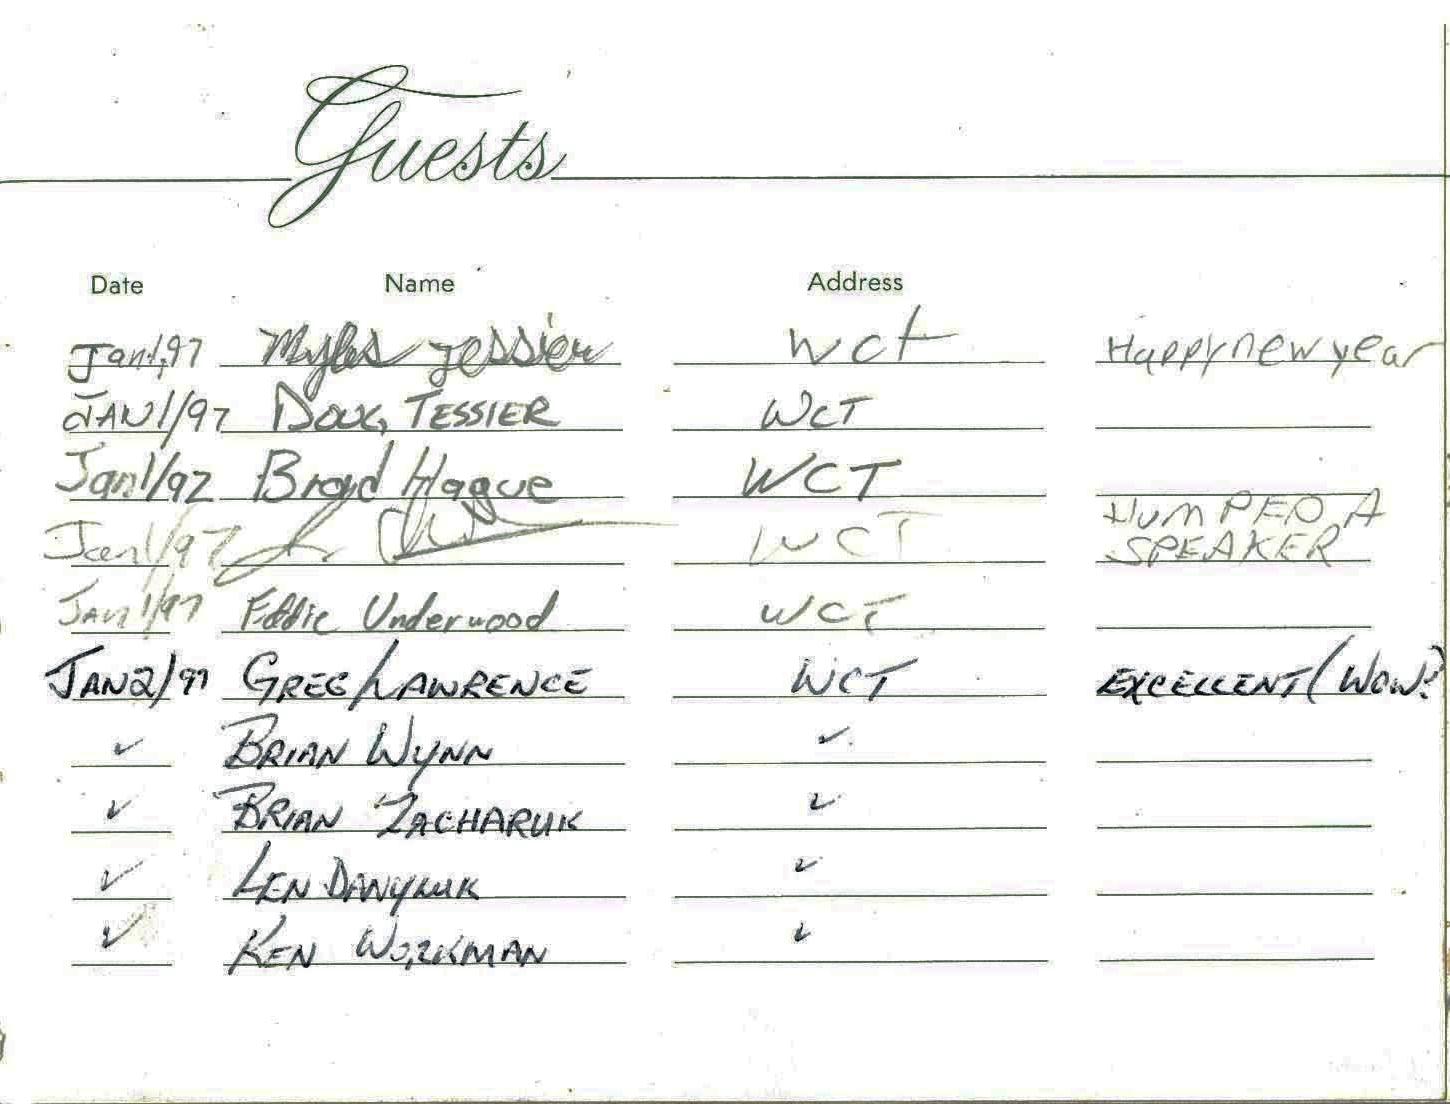 Guests
Date Name Address
Jan1,97 Myles Tessier WCt Happy new year
JAN1/97 DOUG TESSIER WCT
Jan1/97 Brad Hague WCT
Jan1/97 WCT HUMPED A
SPEAKER
JAN 1/97 Eddie Underwood WCT
JAN2/97 GREG LAWRENCE WCT EXCELLENT (WOW?
✓ BRIAN WYNN ✓
✓ BRIAN ZACHARUK ✓
✓ LEN DANYLUK ✓
✓ KEN WORKMAN ✓